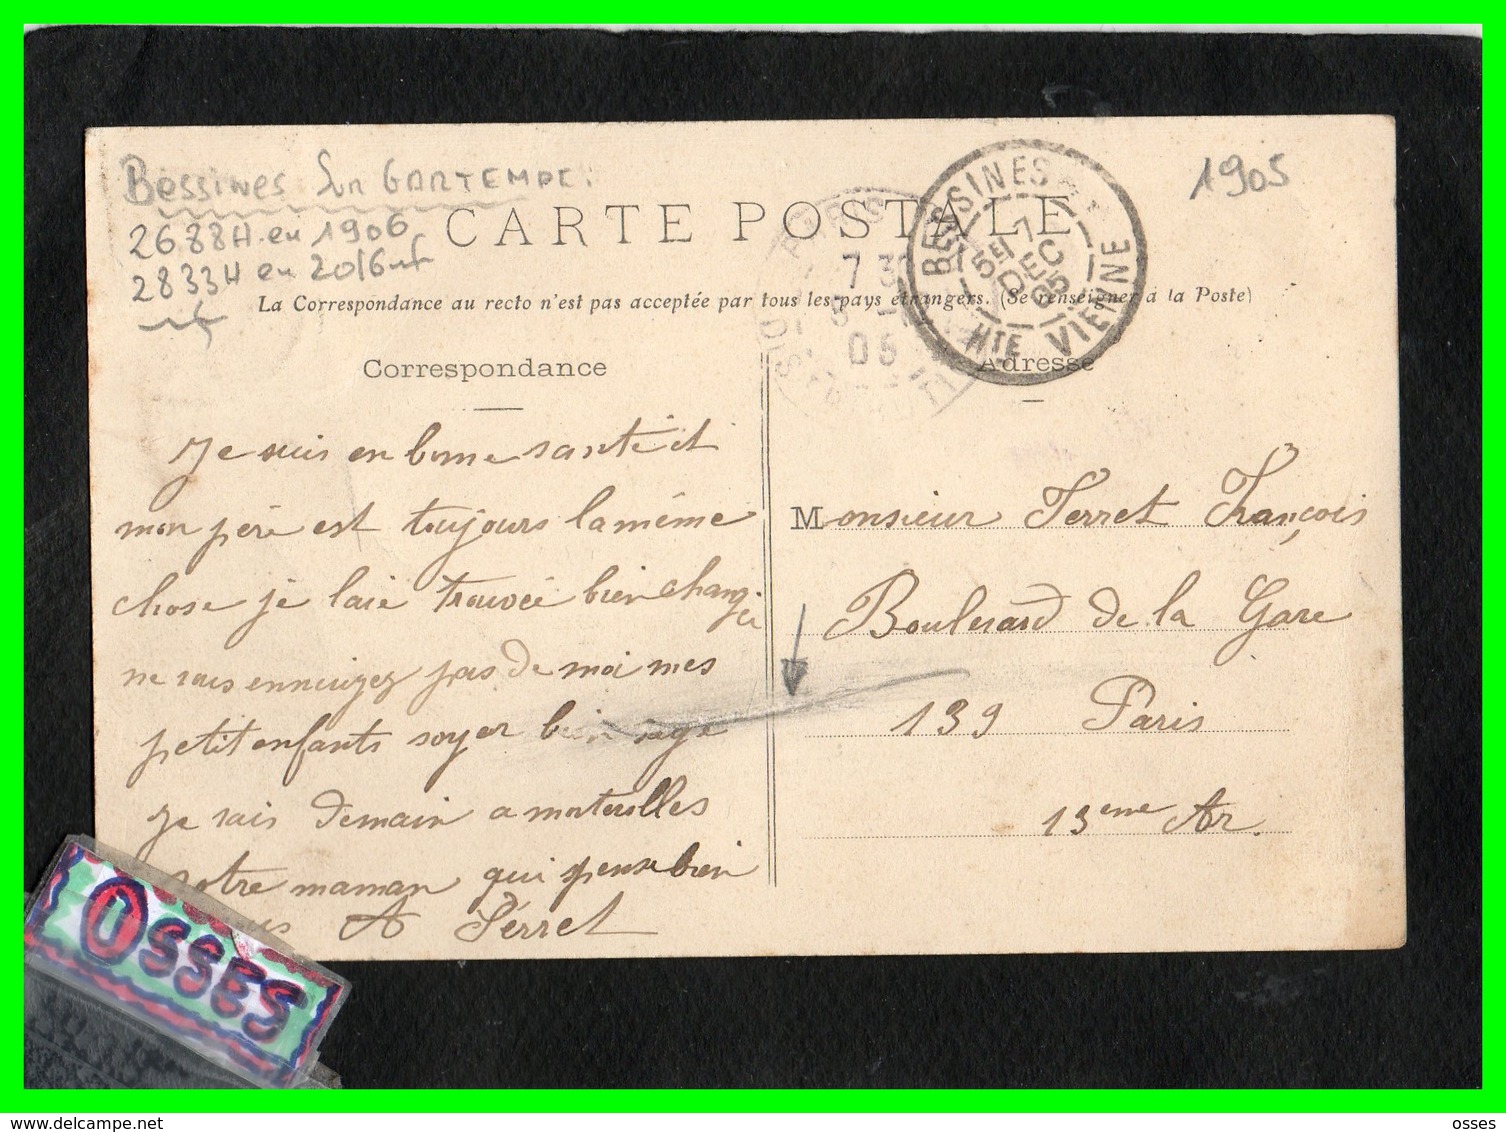 Bessines Sur GARTEMPE.
2688H. en 1906
2833H en 2016
1905
CARTE POSTALE
BESSINES
5E 7
DEC
05
HTE VIENNE
PARIS
7 30
05
La Correspondance au recto n'est pas acceptée par tous les pays étrangers. (Se renseigner à la Poste)
Correspondance
Adresse
Je suis en bonne santé et
mon père est toujours la même
chose je laie trouvée bien changée
ne vous ennuiyez pas de moi mes
petit enfants soyer bien sage
Je vais demain a
votre maman qui pense bien
A Perret
Monsieur Perret François
Boulevard de la Gare
139 Paris
13eme Ar.
OSSES
www.delcampe.net
osses